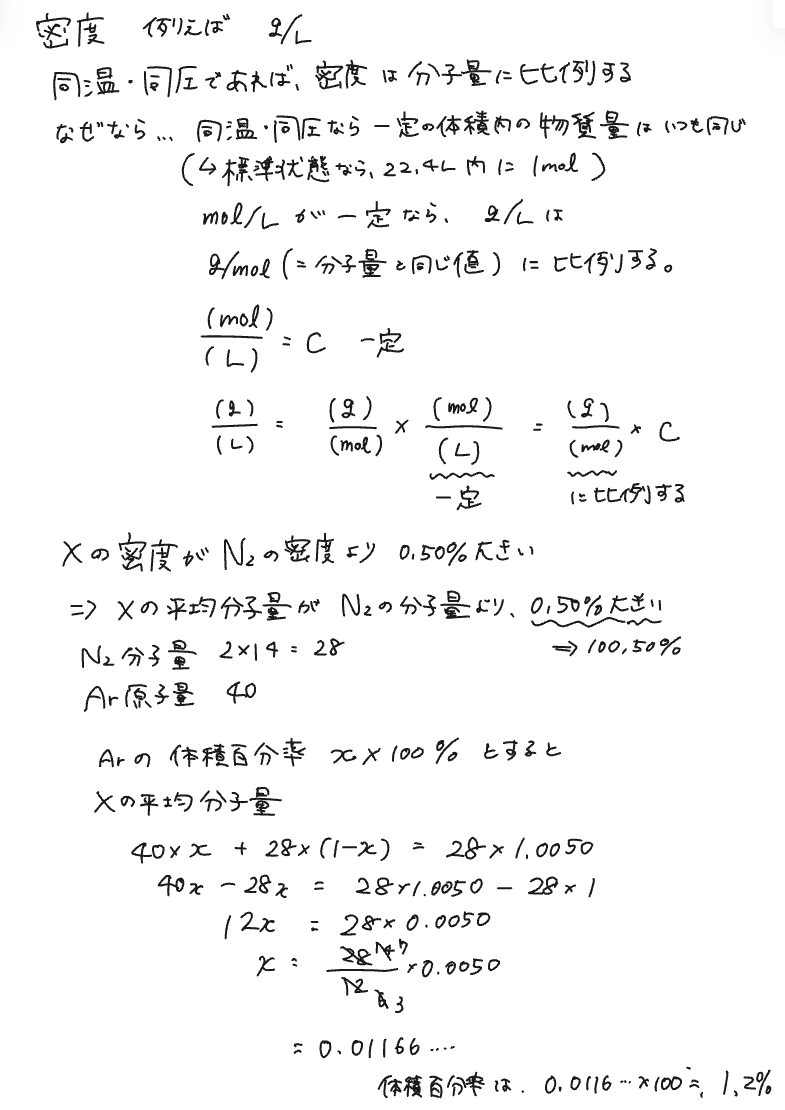 密度 例えば g/L
同温・同圧であれば、密度は分子量に比例する
なぜなら… 同温・同圧なら一定の体積内の物質量はいつも同じ
(↳標準状態なら、22.4L内に1mol)
mol/L が一定なら、g/L は
g/mol (=分子量と同じ値) に比例する。
(mol)/(L) = C 一定
(g)/(L) = (g)/(mol) × (mol)/(L) = (g)/(mol) × C
一定 に比例する
Xの密度がN₂の密度より 0.50%大きい
=> Xの平均分子量が N₂の分子量より、0.50%大きい
N₂分子量 2×14=28 => 100.50%
Ar原子量 40
Arの体積百分率 x×100% とすると
Xの平均分子量
40×x + 28×(1-x) = 28×1.0050
40x - 28x = 28×1.0050 - 28×1
12x = 28×0.0050
x = 28 14 7/12 6 3 ×0.0050
= 0.01166….
体積百分率は、0.0116…×100≒ 1.2%